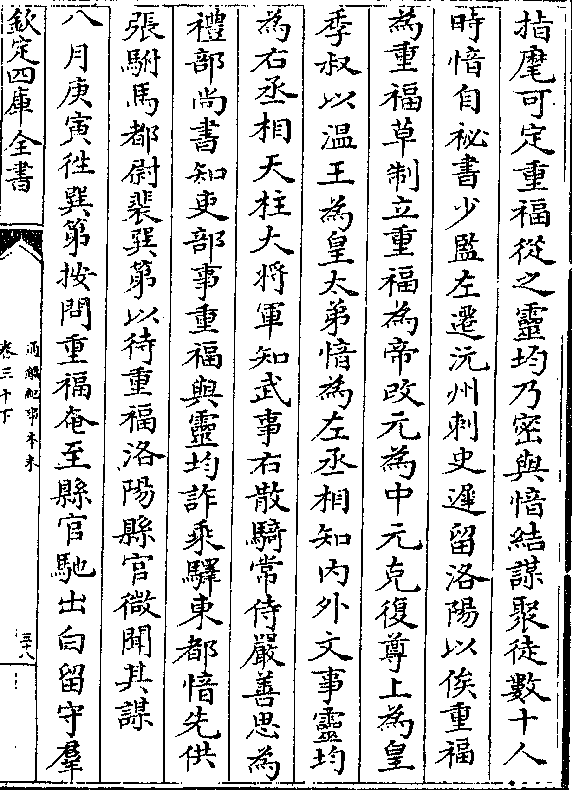 指麾可定重福從之靈均乃密與愔結謀聚徒數十人
時愔自祕書少監左遷沅州刺史遲留洛陽以俟重福
為重福草制立重福為帝改元為中元克復尊上為皇
季叔以溫王為皇太弟愔為左丞相知內外文事靈均
為右丞相天柱大將軍知武事右散騎常侍嚴善思為
禮部尚書知吏部事重福與靈均詐乘驛東都愔先供
張駙馬都尉裴巽第以待重福洛陽縣官微聞其謀
八月庚寅徃巽第按問重福奄至縣官馳出白留守羣
欽定四庫全書
卷三十下
三十八